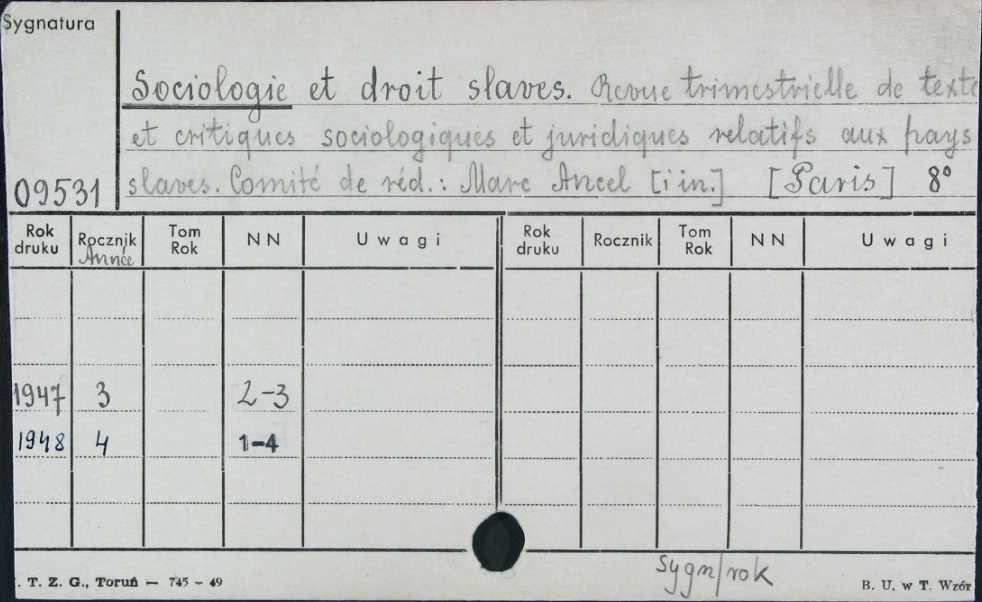 Sygnatura
Sociologie et droit slaves. Revue trimestrielle de texte
et critiques sociologiques et juridiques relatifs aux pays
09531 slaves. Comité de réd.: Marc Ancel [i in.] [Paris] 8°
Rok druku Rocznik Année Tom Rok NN Uwagi Rok druku Rocznik Tom Rok NN Uwagi
1947 3 2-3
1948 4 1-4
sygn/rok
. T. Z. G., Toruń — 745 - 49 B. U. w T. Wzór